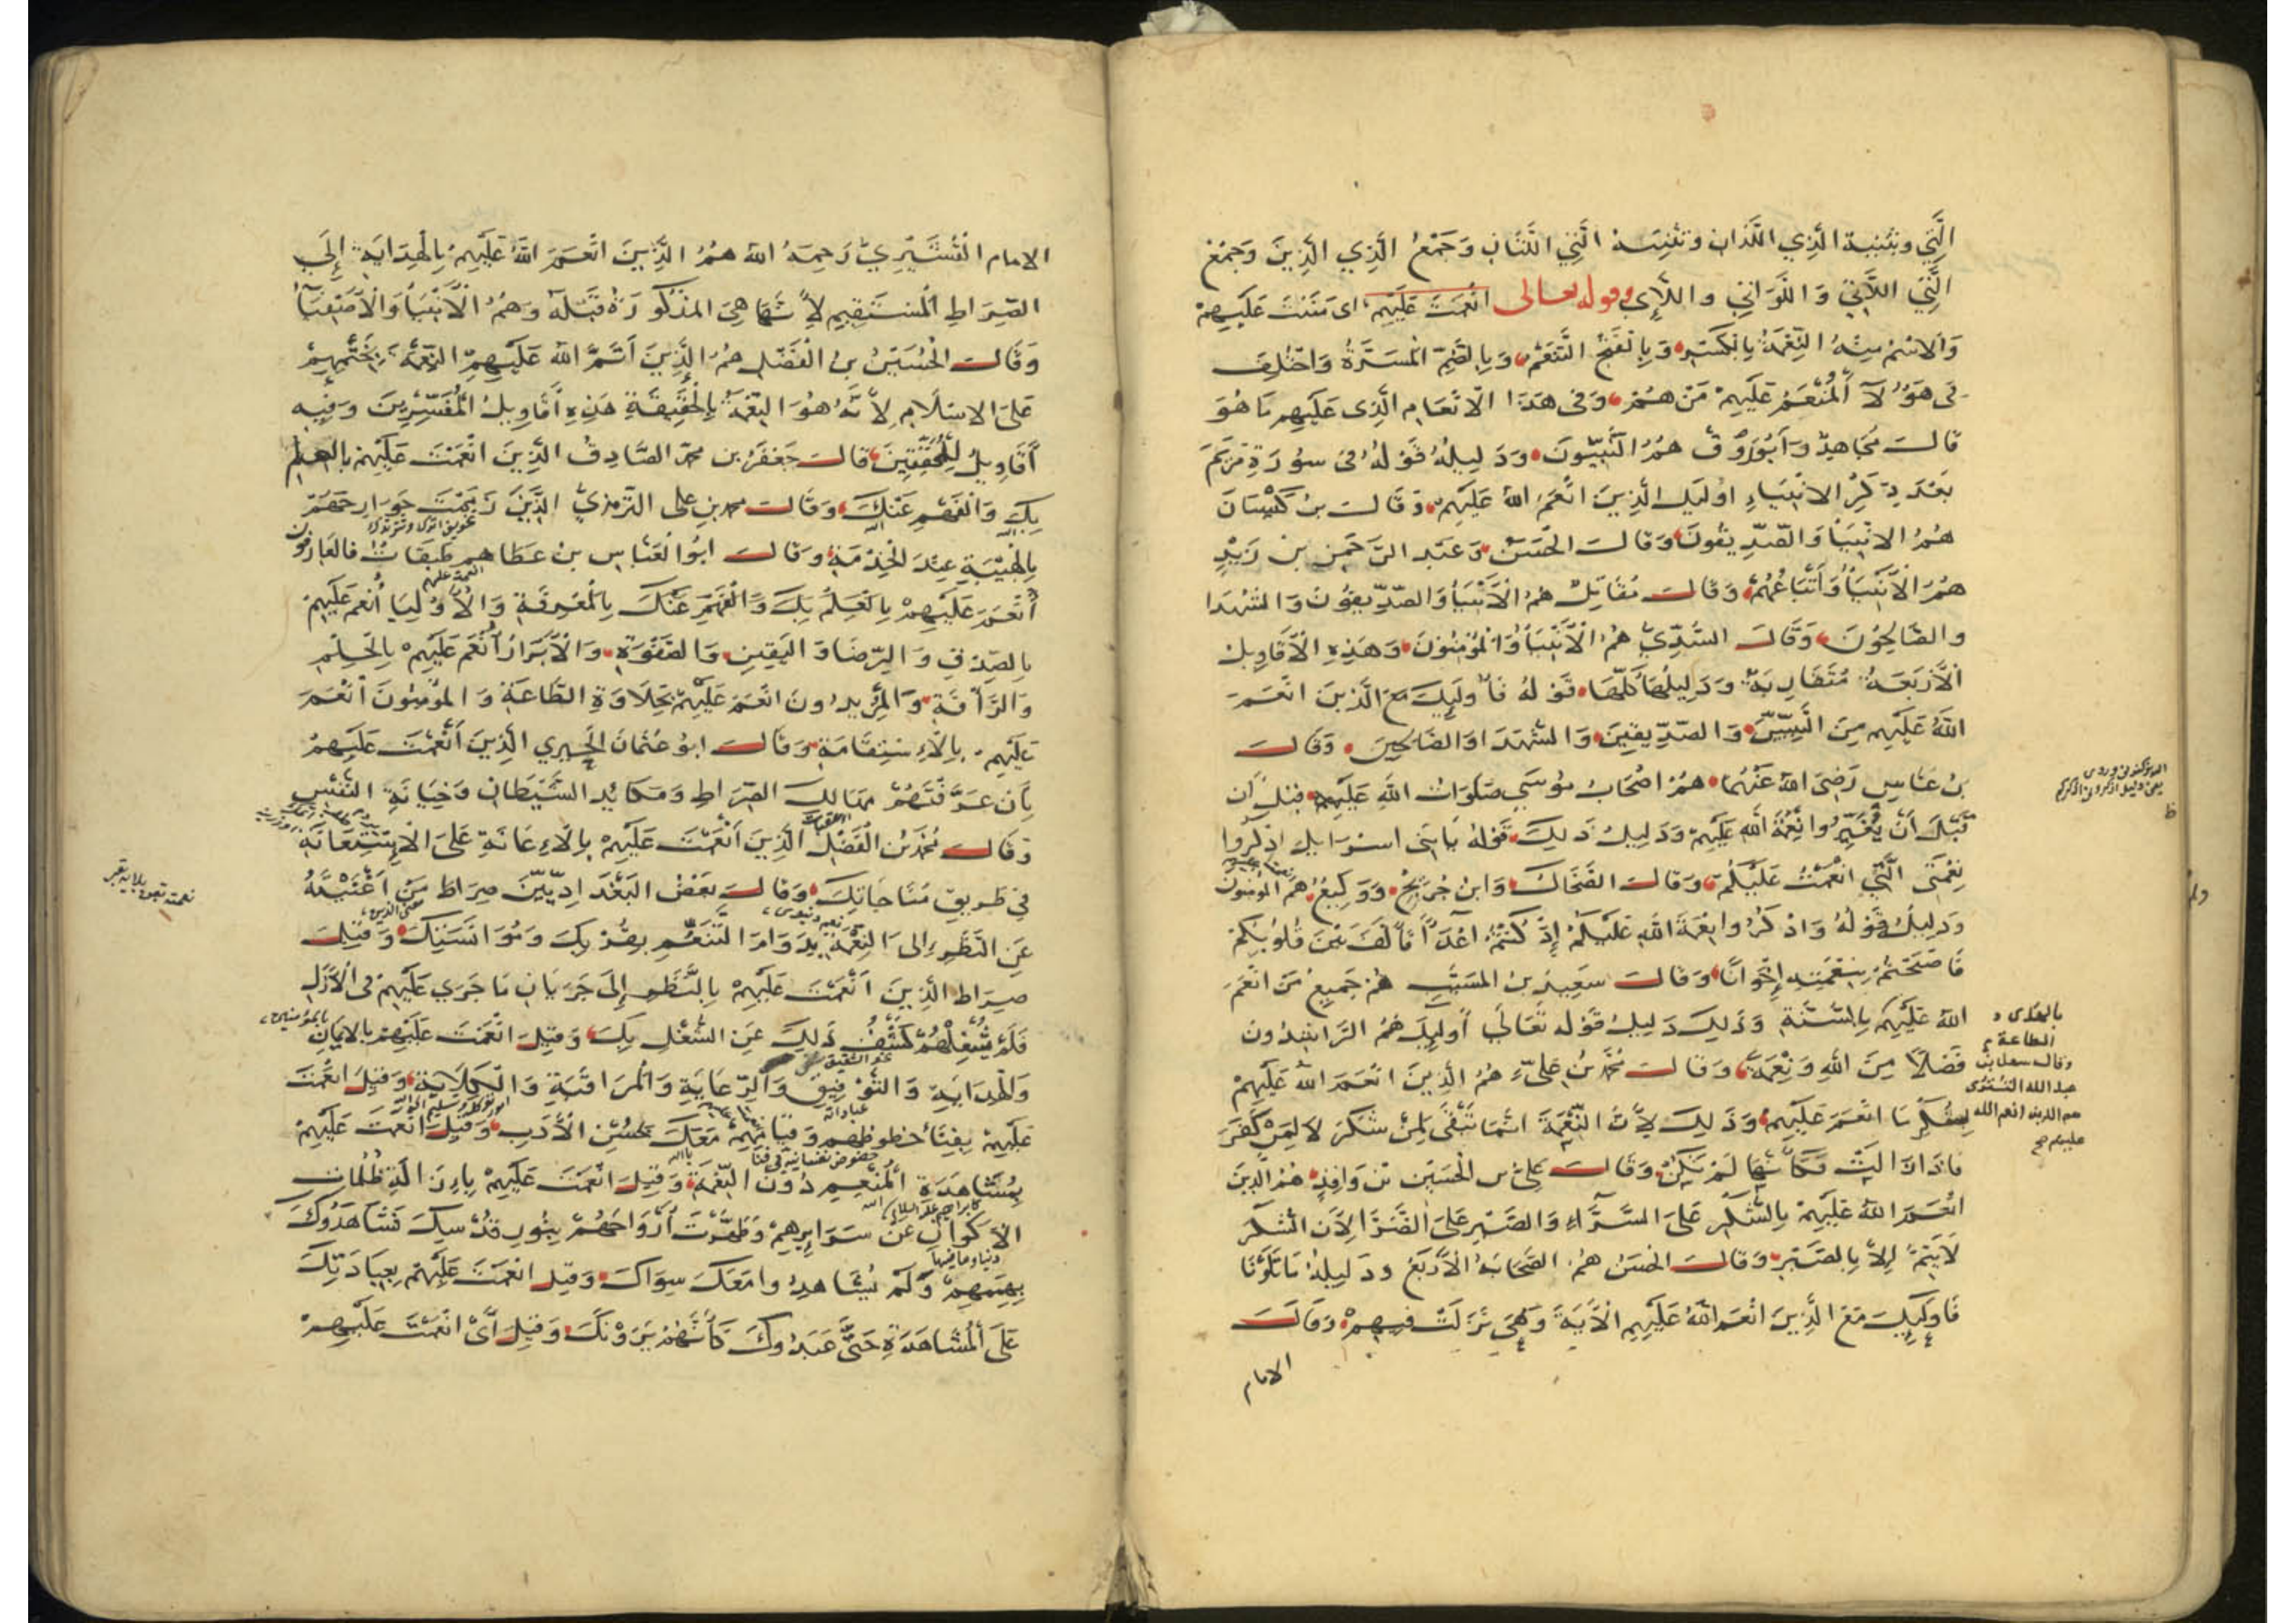 الَّتِي وتثنية الَّذِي اللَّذَانِ وتثنية الَّتِي اللَّتَانِ وَجَمْعُ الَّذِي الَّذِينَ وَجَمْعُ
الَّتِي اللَّاتِي وَاللَّوَاتِي واللَّاءِي وقوله تعالى انْعَمْتَ عَلَيْهِمْ اى مَنَنْتَ عَلَيْهِمْ
وَالاسْمُ مِنْهُ النِّعْمَةُ بِالْكَسْرِ وَبِالْفَتْحِ التَّنَعُّمُ وَبِالضَّمِّ الْمَسَرَّةُ وَاخْتُلِفَ
فى هَؤُلَآءِ الْمُنْعَمِ عَلَيْهِمْ مَنْ هُمْ وَفى هَذَا الانْعَامِ الَّذِى عَلَيْهِم مَا هُوَ
قالَ مُجَاهِدٌ وَأَبُورَوْقٍ هُمُ النَّبِيّونَ وَدَلِيلُهُ قَوْلُهُ فى سُورَةِ مَرْيَمَ
بَعْدَ ذِكْرِ الانْبِيَاءِ اوُلَيِكَ الَّذِينَ انْعَمَ اللهُ عَلَيْهِمْ وَقَالَ بنُ كَيْسَانَ
هُمُ الانْبِيَآءُ وَالصِّدِّيقُونَ وَقالَ الْحَسَنُ وَعَبْد الرَّحَمنِ بنُ زَيْدٍ
هُمُ الْأَنْبِيَآءُ وَأَتْبَاعُهُمْ وَقَالَ مُقَاتِلٌ هُمُ الْأَنْبِيَآءُ وَالصِّدِّيقُونَ وَالشُّهَدَا
والصَّالِحُونَ وَقَالَ السُّدِّيُّ هُمُ الْأَنْبِيَآءُ وَالْمُؤْمِنُونَ وَهَذِهِ الْأَقَاوِيلُ
الْأَرْبَعَةُ مُتَقَارِبَةٌ وَدَلِيلُهَا كُلِّهَا قَوْلُهُ فَأُولَيِكَ مَعَ الَّذِينَ انْعَمَ
اللهُ عَلَيْهِم مِنَ النَّبِيِّينَ وَالصِّدِّيقِينَ وَالشُّهَدَا وَالصَّالِحِينَ وَقَالَ
بنُ عَبَّاسٍ رَضِىَ اللهُ عَنْهُمَا هُمْ اصْحَابُ مُوسَى صَلَوَاتُ اللهِ عَلَيْهِم قَبْلَ أَن
قَبْلَ أَنْ يُغَيِّرُوا نِعْمَةَ اللهِ عَلَيْهِمْ وَدَلِيلُ ذَلِكَ قَوْلُهُ يَا بَنِى اسْرَايِلَ اذْكُرُوا
نِعْمَتِى الَّتِي انْعَمْتُ عَلَيْكُمْ وَقالَ الضَّحَّاكُ وَابْنُ جُرَيْجٍ وَوَكِيعٌ هُمُ الْمُؤْمِنُونَ
وَدَلِيلُهُ قَوْلُهُ وَاذْكُرُوا نِعْمَةَ اللهِ عَلَيْكُمْ إِذْ كُنْتُمْ اعْدَآءً فَأَلَّفَ بَيْنَ قُلُوبِكُمْ
فَاصْبَحْتُمْ بِنِعْمَتِهِ إِخْوَانًا وَقالَ سَعِيدُ بنُ الْمُسَيَّبِ هُمْ جَمِيعُ مَنْ انْعَمَ
اللهُ عَلَيْهِم بِالسُّنَّةِ وَذَلِكَ دَلِيلُ قَوْله تَعَالَى أُولَيِكَ هُمُ الرَّاشِدُونَ
فَضْلًا مِنَ اللهِ وَنِعْمَةً وَقَالَ مُحَمَّدُ بنُ عَلِيٍّ هُمُ الَّذِينَ انْعَمَ اللهُ عَلَيْهِمْ
لِشُكْرِ مَا انْعَمَ عَلَيْهِمْ وَذَلِكَ لِأَنَّ النِّعْمَةَ انَّمَا تَبْقَى لِمَنْ شَكَرَ لَا لِمَنْ كَفَرَ
فاذا زالَتْ فَكَأَنَّهَا لَمْ تَكُنْ وَقَالَ عَلِىُّ بن الْحُسَيْنِ بْنِ وَاقِدٍ هُمُ الذِينَ
انْعَمَ اللهُ عَلَيْهِمْ بِالشُّكْرِ عَلَى السَّرَّاءِ وَالصَّبْرِ عَلَى الضَّرَّا لِأَنَّ الشُّكْرَ
لَا يَتِمُّ إِلَّا بِالصَّبْرِ وَقَالَ الْحَسَنُ هُمُ الصَّحَابَةُ الْأَرْبَعُ وَدَلِيلُهُ مَا تَلَوْنَا
فَاوُلَيِكَ مَعَ الَّذِينَ انْعَمَ اللهُ عَلَيْهِمِ الْآيَةَ وَهِيَ نَزَلَتْ فِيهِمْ وَقَالَ
الامام
بالهدى و
الطاعة
وقال سهل بن
عبد الله التسترى
هم الذين انعم الله
عليهم
الامام الْقُشَيْرِيُّ رَحِمَهُ اللهُ هُمُ الَّذِينَ انْعَمَ اللهُ عَلَيْهِمْ بِالْهِدَايَةِ إِلَى
الصِّرَاطِ الْمُسْتَقِيمِ لِأَنَّهَا هِىَ المَذْكُورَةُ قَبْلَهُ وَهُمُ الْأَنْبِيَآءُ وَالْأَصْفِيَآءُ
وَقَالَ الْحُسَيْنُ بنُ الْفَضْلِ هُمُ الَّذِينَ أَتَمَّ اللهُ عَلَيْهِمُ النِّعْمَةَ بِخَتْمِهِمْ
عَلَى الاسْلَامِ لِأَنَّهُ هُوَ النِّعْمَةُ بِالْحَقِيقَةِ هَذِهِ أَقَاوِيلُ الْمُفَسِّرِينَ وَفِيهِ
أَقَاوِيلُ لِلْمُحَقِّقِينَ قالَ جَعْفَرُ بن محمّد الصَّادِقُ الَّذِينَ انْعَمْتَ عَلَيْهِمْ بِالعِلْمِ
بِكَ وَالْفَهْمِ عَنْكَ وَقَالَ محمد بن على التِّرْمِذِيُّ الَّذِينَ زَيَّنْتَ جَوَارِحَهُمْ
بِالْهَيْبَةِ عِنْدَ الْخِدْمَةِ وَقَالَ ابُو الْعَبَّاسِ بنُ عَطَا هم طَبَقَاتٌ فالعَارِفُونَ
أَنْعَمَ عَلَيْهِمْ بِالْعِلْمِ بِكَ وَالْفَهْمِ عَنْكَ بِالْمَعْرِفَةِ وَالْأَوْلِيَا أَنْعَمَ عَلَيْهِمْ
بِالصِّدْقِ وَالرِّضَا وَالْيَقِينِ وَالصَّفْوَةِ وَالْأَبْرَارُ أَنْعَمَ عَلَيْهِمْ بِالْحِلْمِ
وَالرَّأْفَةِ وَالْمُرِيدُونَ انْعَمَ عَلَيْهِمْ بِحَلَاوَةِ الطَّاعَةِ وَالْمُؤْمِنُونَ أَنْعَمَ
عَلَيْهِمْ بِالْاِسْتِقَامَةِ وَقَالَ ابُو عُثْمَانَ الْحِيرِي الَّذِينَ أَنْعَمْتَ عَلَيْهِمْ
بِأَن عَرَّفْتَهُمْ مَهَالِكَ الصِّرَاطِ وَمَكَائِدَ الشَّيْطَانِ وَخِيَانَةَ النَّفْسِ
وَقَالَ مُحَمَّدُ بْنُ الْفَضْلِ الَّذِينَ أَنْعَمْتَ عَلَيْهِمْ بِالْاِعَانَةِ عَلَى الْاِسْتِعَانَةِ
فِي طَرِيقِ مُنَاجَاتِكَ وَقَالَ بَعْضُ الْبَغْدَادِيِّينَ صِرَاطَ مَنْ اغْنَيْتَهُ
عَنِ النَّظَرِ إِلَى النِّعْمَةِ بِدَوَامِ التَّنَعُّمِ بِقُرْبِكَ وَمُوَانَسَتِكَ وَقِيلَ
صِرَاطَ الَّذِينَ انْعَمْتَ عَلَيْهِمْ بِالنَّظَرِ إِلَى جَرَيَانِ مَا جَرَى عَلَيْهِمْ فى الْأَزَلِ
فَلَمْ يُشْغِلْهُمْ كَشْفُ ذَلِكَ عَنِ الشُّغْلِ بِكَ وَقِيلَ انْعَمْتَ عَلَيْهِمْ بِالايمَانِ
وَالْهِدَايَةِ وَالتَّوْفِيقِ وَالرِّعَايَةِ وَالْمُرَاقَبَةِ وَالْكِلَايَةِ وَقِيلَ انْعَمْتَ
عَلَيْهِمْ بِفَنَاءِ حظوظهم وَقِيَامِهِمْ مَعَكَ بِحُسْنِ الْأَدَبِ وَقِيلَ انْعَمْتَ عَلَيْهِمْ
بِمُشَاهَدَةِ الْمُنْعِمِ دُونَ النِّعْمَةِ وَقِيلَ انْعَمْتَ عَلَيْهِمْ بِاِزَالَةِ ظُلُمَاتِ
الْأَكْوَانِ عَنْ سَرَايِرِهِمْ وَطَهَّرْتَ أَرْوَاحَهُمْ بِنُورِ قُدْسِكَ فَشَاهَدُوكَ
بِهِمَمِهِمْ وَلَمْ يُشَاهِدُوا مَعَكَ سِوَاكَ وَقِيلَ انْعَمْتَ عَلَيْهِمْ بِعِبَادَتِكَ
عَلَى الْمُشَاهَدَةِ حَتَّى عَبَدُوكَ كَأَنَّهُمْ يَرَوْنَكَ وَقِيلَ أَىْ انْعَمْتَ عَلَيْهِمْ